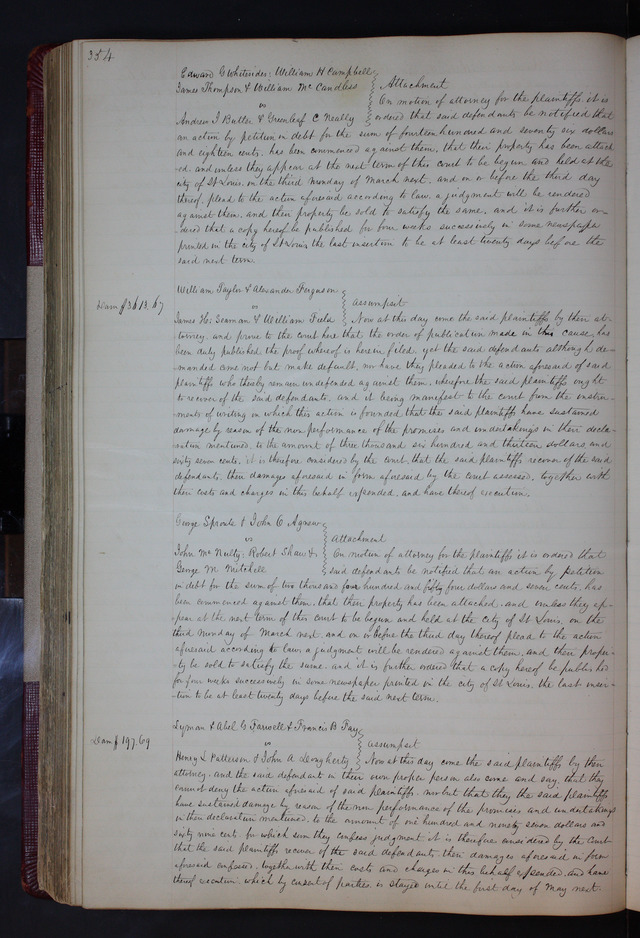 354
Edward G Whitesides, William H Campbell
James Thompson & William Mc Candless
vs
Attachment
On motion of attorney for the plaintiffs, it is
Andrew J Butler & Greenleaf C Neally ordered that said defendants be notified that
an action by petition in debt for the sum of fourteen hundred and seventy six dollars
and eighteen cents, has been commenced against them, that their property has been attach
ed, and unless they appear at the next term of this court to be begun and held at the
city of St Louis, on the third Monday of March next, and on or before the third day
thereof, plead to the action aforesaid according to law, a judgment will be rendered
against them, and their property be sold to satisfy the same, and it is further or-
dered that a copy hereof be published for four weeks successively in some newspaper
printed in the city of St Louis, the last insertion to be at least twenty days before the
said next term.
William Taylor & Alexander Ferguson
Dam $3613.67
vs
assumpsit
James H. Seaman & William Field Now at this day come the said plaintiffs by their at-
torney, and prove to the court here that the order of publication made in this cause, has
been duly published the proof whereof is herein filed, yet the said defendants although de-
manded come not but make default, nor have they pleaded to the action aforesaid of said
plaintiffs who thereby remain undefended against them, wherefore the said plaintiffs ought
to recover of the said defendants, and it being manifest to the court from the instru-
ments of writing on which this action is founded that the said plaintiffs have sustained
damage by reason of the non performance of the promises and undertakings in their decla-
ration mentioned, to the amount of three thousand six hundred and thirteen dollars and
sixty seven cents, it is therefore considered by the court, that the said plaintiffs recover of the said
defendants, their damages aforesaid in form aforesaid by the court assessed, together with
their costs and charges in this behalf expended, and have thereof execution.
George Sproule & John C Agnew
vs
attachment
John McNulty, Robert Shaw & On motion of attorney for the plaintiffs it is ordered that
George M. Mitchell said defendants be notified that an action by petition
in debt for the sum of two thousand four hundred and fifty four dollars and seven cents, has
been commenced against them, that their property has been attached, and unless they ap-
pear at the next term of this court to be begun and held at the city of St Louis, on the
third Monday of March next, and on or before the third day thereof plead to the action
aforesaid according to law, a judgment will be rendered against them, and their proper-
ty be sold to satisfy the same, and it is further ordered that a copy hereof be published
for four weeks successively in some newspaper printed in the city of St Louis, the last inser-
tion to be at least twenty days before the said next term.
Lyman & Abel G Farwell & Francis B Fay
Dam $197.69
vs
assumpsit
Henry L Patterson & John A Dougherty Now at this day come the said plaintiffs by their
attorney, and the said defendants in their own proper person also come and say, that they
cannot deny the action aforesaid of said plaintiffs, nor but that they the said plaintiffs
have sustained damage by reason of the non performance of the promises and undertakings
in their declaration mentioned, to the amount of one hundred and ninety seven dollars and
sixty nine cents, for which sum they confess judgment, it is therefore considered by the Court
that the said plaintiffs recover of the said defendants, their damages aforesaid in form
aforesaid confessed, together with their costs and charges in this behalf expended, and have
thereof execution, which by consent of parties is stayed until the first day of May next.